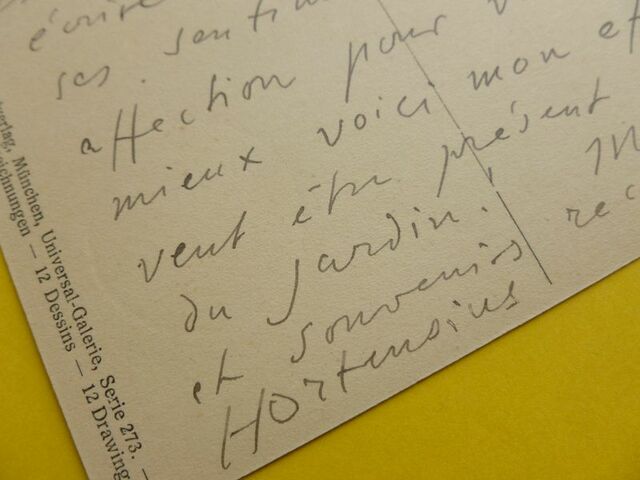 écrire
ses sentim
affection pour v
mieux voici mon ef
veut être présent
du jardin. M
et souvenirs rec
Hortensius
verlag, München, Universal-Galerie, Serie 273. —
eichnungen — 12 Dessins — 12 Drawing